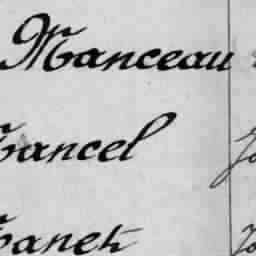 Manceau
ancel Jo
anet Jo